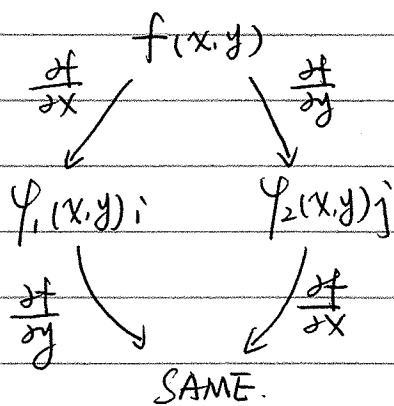 f(x,y)
∂f/∂x ∂f/∂y
φ₁(x,y)i φ₂(x,y)j
∂f/∂y ∂f/∂x
SAME.